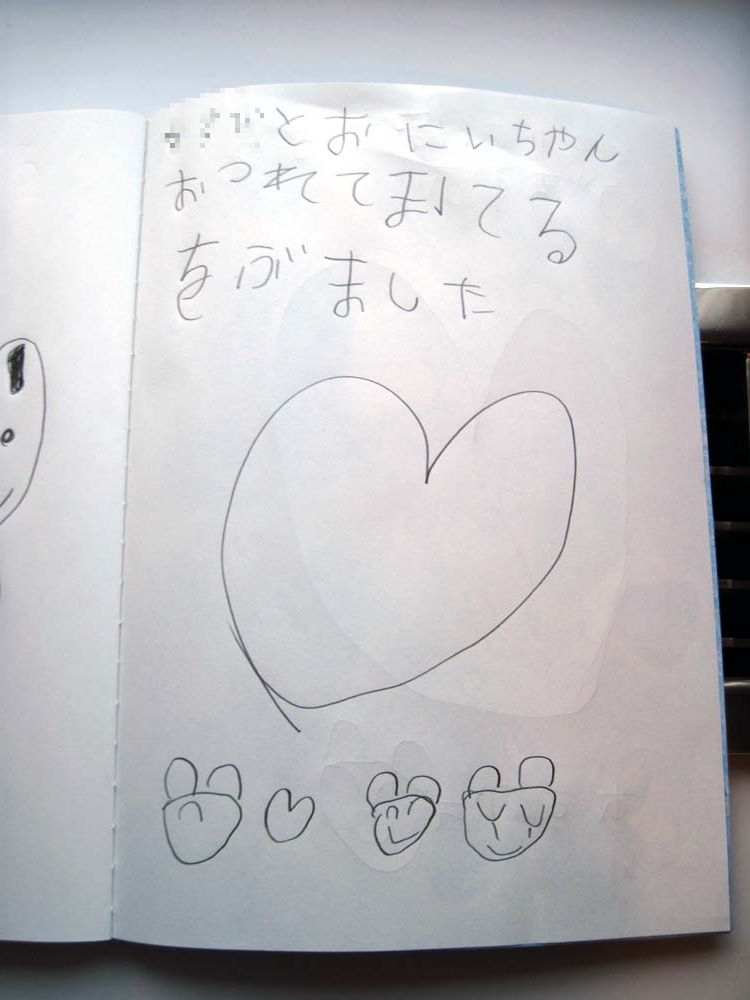 とおにいちゃん
おつれてて
をぶました